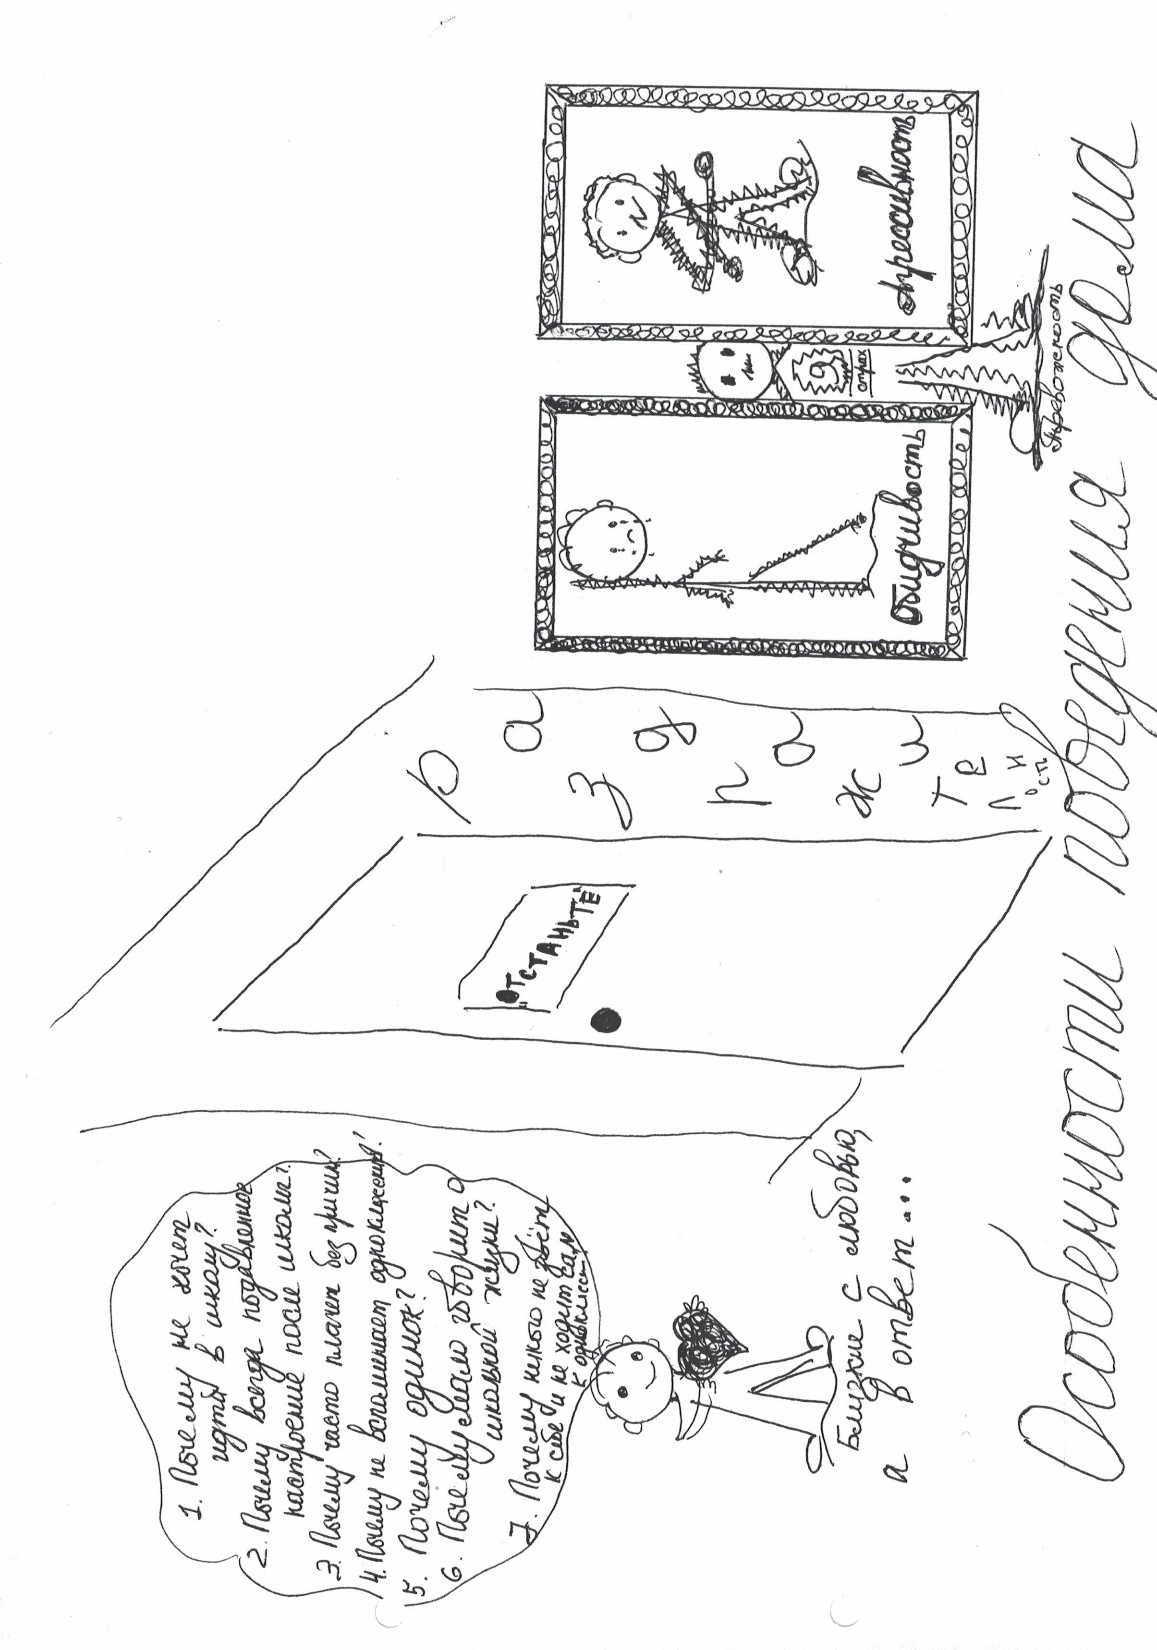 1. Почему не хочет
идти в школу?
2. Почему всегда подавленное
настроение после школы?
3. Почему часто плачет без причин?
4. Почему не вспоминает одноклассников?
5. Почему одинок?
6. Почему мало говорит о
школьной жизни?
7. Почему никого не зовёт
к себе и не ходит сам
к одноклассн.
Близкие с любовью,
а в ответ...
"ОТСТАНЬТЕ"
Раздражительность
Обидчивость
Я
страх
Тревожность
Агрессивность
Особенности поведения дома